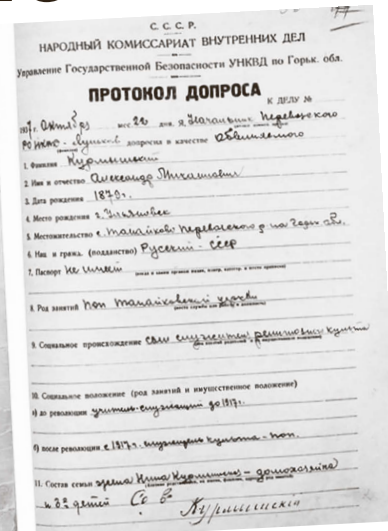 С.С.С.Р.
НАРОДНЫЙ КОМИССАРИАТ ВНУТРЕННИХ ДЕЛ
Управление Государственной Безопасности УНКВД по Горьк. обл.
ПРОТОКОЛ ДОПРОСА
К ДЕЛУ №
1937 г. октября мес 22 дня. Я, Начальник Перевозского
допросил в качестве обвиняемого
1. Фамилия Курмышский
2. Имя и отчество Александр Михайлович
3. Дата рождения 1879 г.
4. Место рождения г. Ульяновск
5. Местожительство с. Танайково Перевозского р-на Горьк. обл.
6. Нац. и гражд. (подданство) Русский - СССР
7. Паспорт Не имеет
8. Род занятий поп Танайковской церкви
9. Социальное происхождение сын служителя религиозного культа
10. Социальное положение (род занятий и имущественное положение)
а) до революции учитель-служащий до 1917 г.
б) после революции с 1917 г. служитель культа - поп.
11. Состав семьи жена Нина Курмышская - домохозяйка
и 3е детей
Курмышский